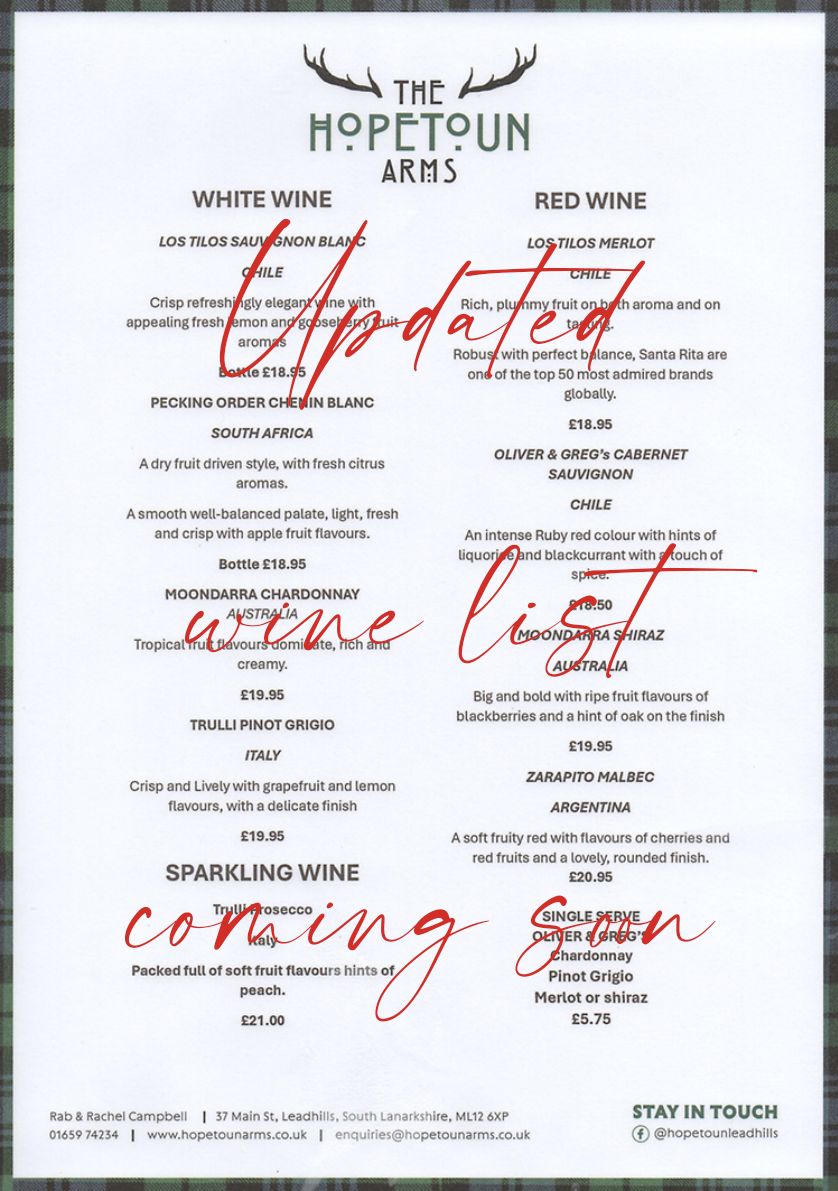 THE
HOPETOUN
ARMS
WHITE WINE
LOS TILOS SAUVIGNON BLANC
CHILE
Crisp refreshingly elegant wine with
appealing fresh lemon and gooseberry fruit
aromas
Bottle £18.95
PECKING ORDER CHENIN BLANC
SOUTH AFRICA
A dry fruit driven style, with fresh citrus
aromas.
A smooth well-balanced palate, light, fresh
and crisp with apple fruit flavours.
Bottle £18.95
MOONDARRA CHARDONNAY
AUSTRALIA
Tropical fruit flavours dominate, rich and
creamy.
£19.95
TRULLI PINOT GRIGIO
ITALY
Crisp and Lively with grapefruit and lemon
flavours, with a delicate finish
£19.95
SPARKLING WINE
Trulli Prosecco
Italy
Packed full of soft fruit flavours hints of
peach.
£21.00
RED WINE
LOS TILOS MERLOT
CHILE
Rich, plummy fruit on both aroma and on
tasting.
Robust with perfect balance, Santa Rita are
one of the top 50 most admired brands
globally.
£18.95
OLIVER & GREG's CABERNET
SAUVIGNON
CHILE
An intense Ruby red colour with hints of
liquorice and blackcurrant with a touch of
spice.
£18.50
MOONDARRA SHIRAZ
AUSTRALIA
Big and bold with ripe fruit flavours of
blackberries and a hint of oak on the finish
£19.95
ZARAPITO MALBEC
ARGENTINA
A soft fruity red with flavours of cherries and
red fruits and a lovely, rounded finish.
£20.95
SINGLE SERVE
OLIVER & GREG'S
Chardonnay
Pinot Grigio
Merlot or shiraz
£5.75
Updated
wine list
coming soon
Rab & Rachel Campbell | 37 Main St, Leadhills, South Lanarkshire, ML12 6XP
01659 74234 | www.hopetounarms.co.uk | enquiries@hopetounarms.co.uk
STAY IN TOUCH
@hopetounleadhills